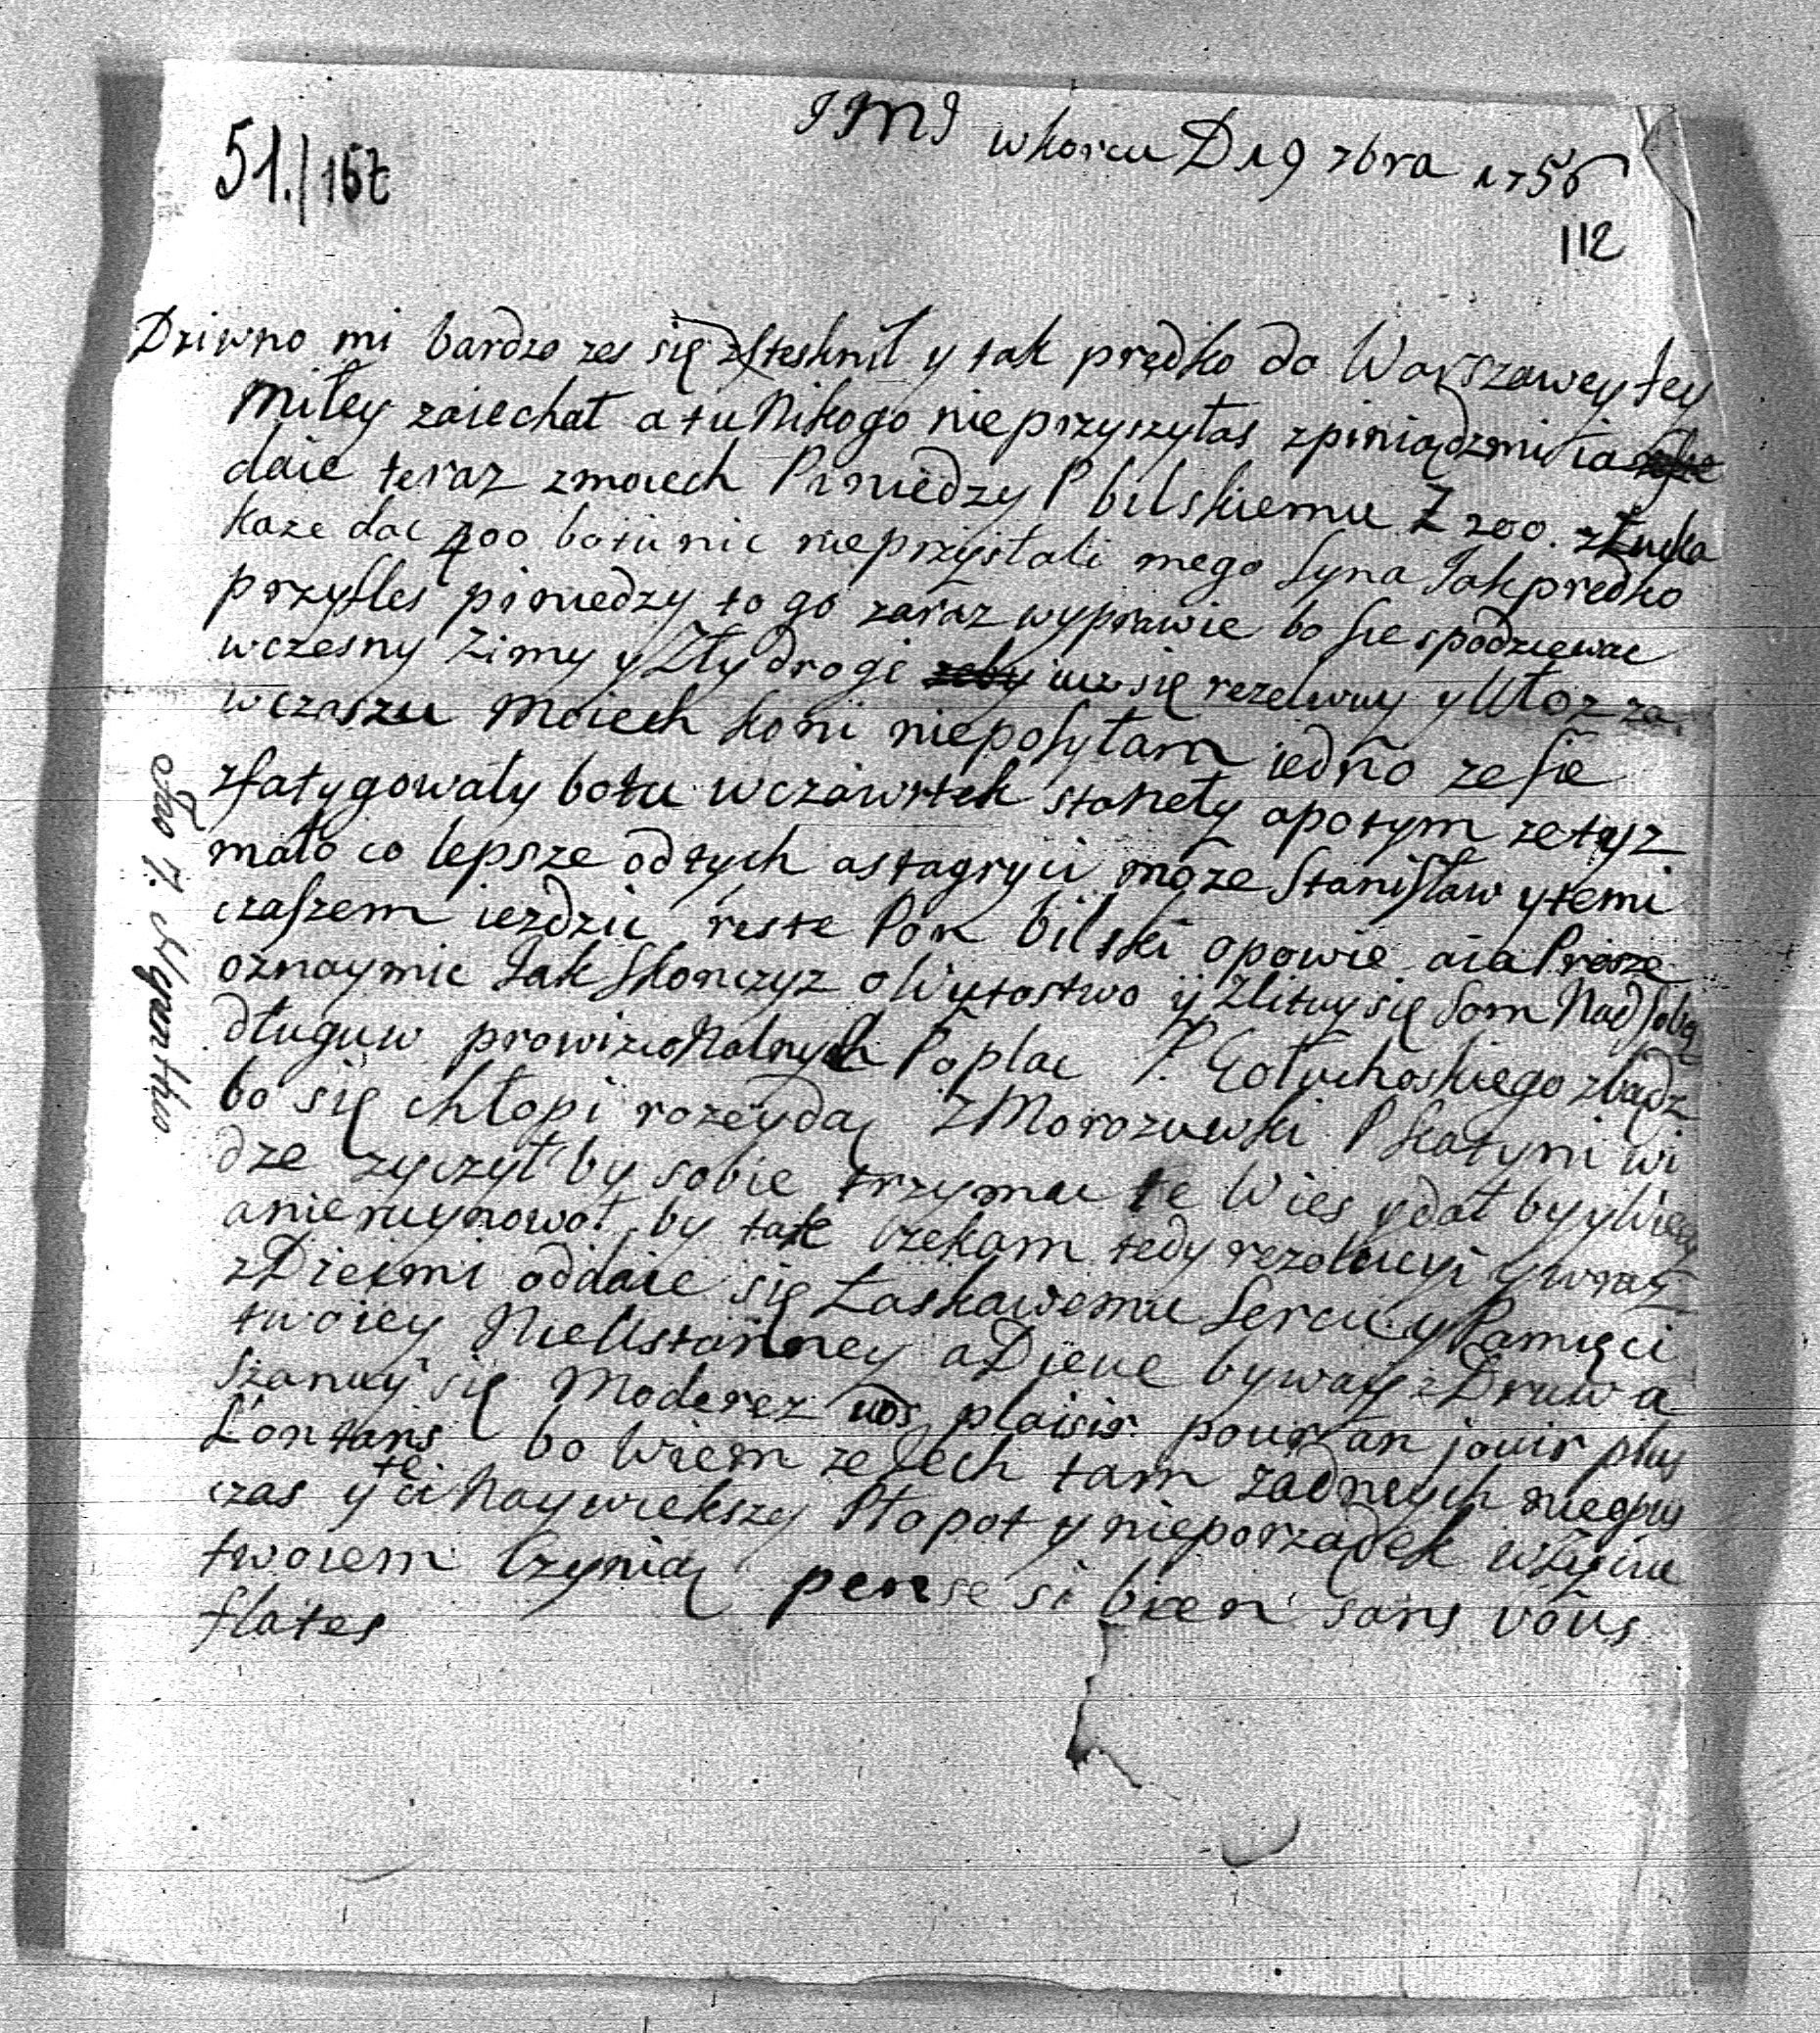 JMJ w korcu D 19 7bra 1756
51./157
112
Dziwno mi bardzo zes się steshnił y tak prędko do Warszawey tey
miłey zaiechał a tu Nikogo nieprzyszyłas zpiniądzmi ia
daie teraz zmoiech Piniedzy P bilskiemu Z 200. z Łucka
kaze dac 400 bo tu nic nieprzystali mego Syna Jak predko
przysles piniedzy to go zaraz wyprawie bo sie spodziewac
wczesny Zimy y Zły drogi zeby się rezelwuy y Ułoz za
wczaszu Moiech koni nieposyłam iedno ze sie
zfatygowały bo tu wczawrtek staneły apotym ze tysz
mało co lepsze od tych astagryci może Stanisław y temi
czaszem iezdzic reste Pan bilski opowie aia Prosze
oznaymic Jak skonczyz o Wytostwo y Zlituy się Sam Nad sobą
długuw prowizioNalnych Poplac P. Gołuchoskiego zbądz
bo się chłopi rozeydą Z Morozuwki P Skatyni wi
dze zyczył by sobie trzymac te Wies y dał by y Wiecy
anieruynował by tak Czekam tedy rezolucyi y wraz
zDziećmi oddaie się Łaskawemu Sercu y Pamięci
twoiey NieUstanney aDieue byway zDruwa
szanuy się Moderez vos plaisir pour an jouir plus
Lontans bo Wiem ze Lech tam żadnych
czas y te ci Naywiekszy kłopot y nieporządek wżyciu
twoiem Czynią pense si bien sans vous
flates
No 7. Nyantko